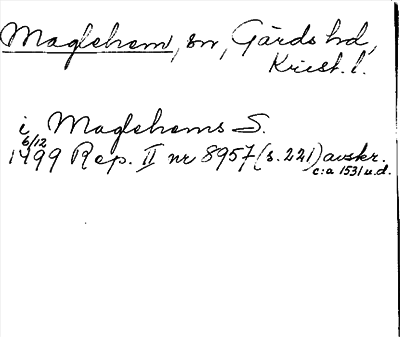 Maglehem, sn, Gärds hd,
Krist. l.
i Maglehems S.
6/12
1499 Rep. II nr 8957 (s. 221) avskr.
c:a 1531 u.d.